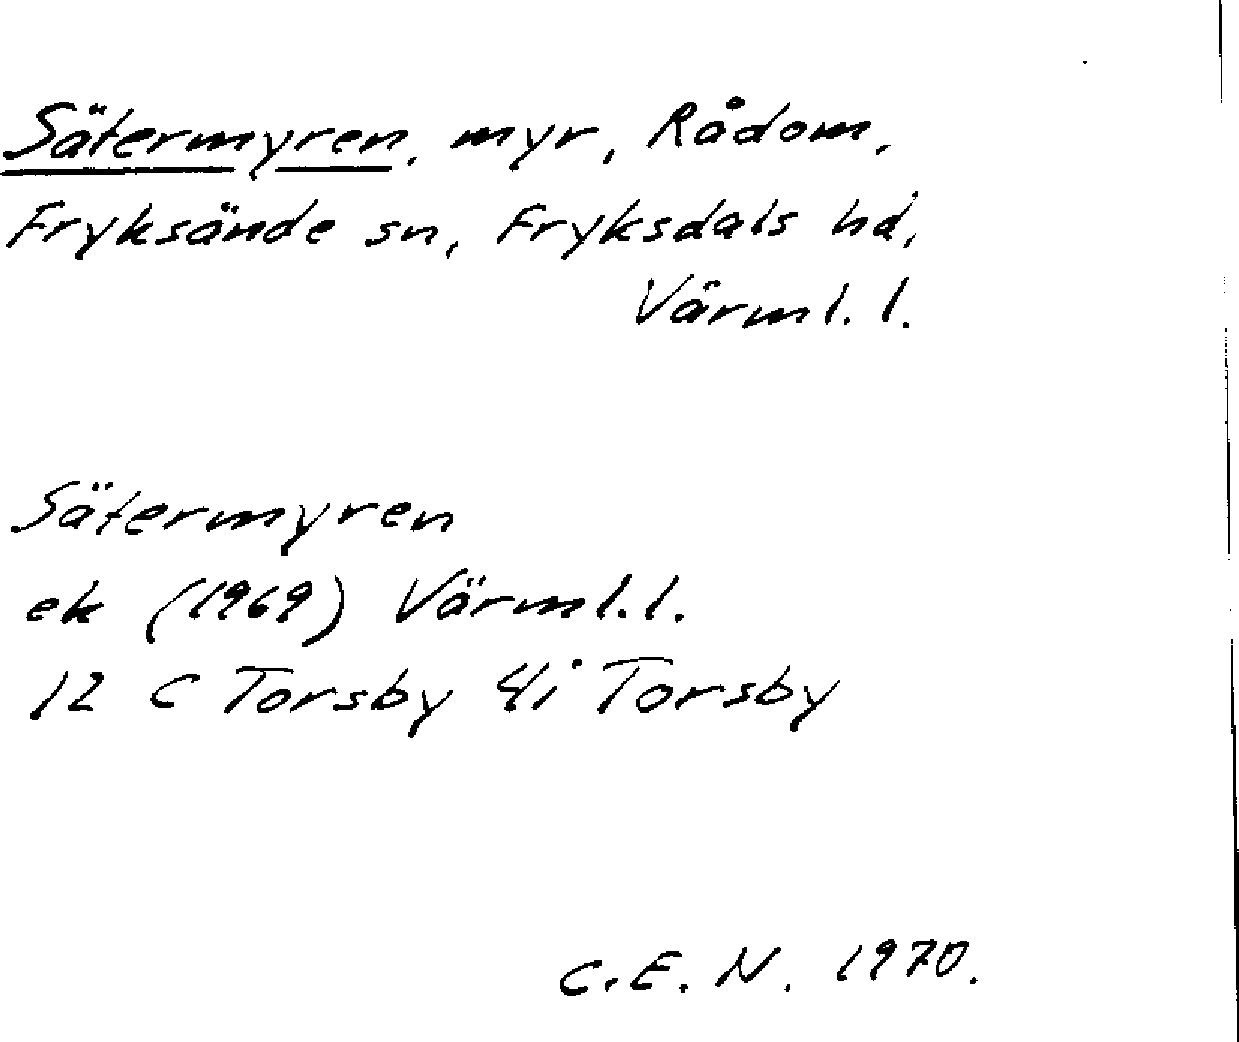 Sätermyren, myr, Rådom,
Fryksände sn, Fryksdals hd,
Värml. l.
Sätermyren
ek (1969) Värml. l.
12 C Torsby 4i Torsby
C. E. N. 1970.